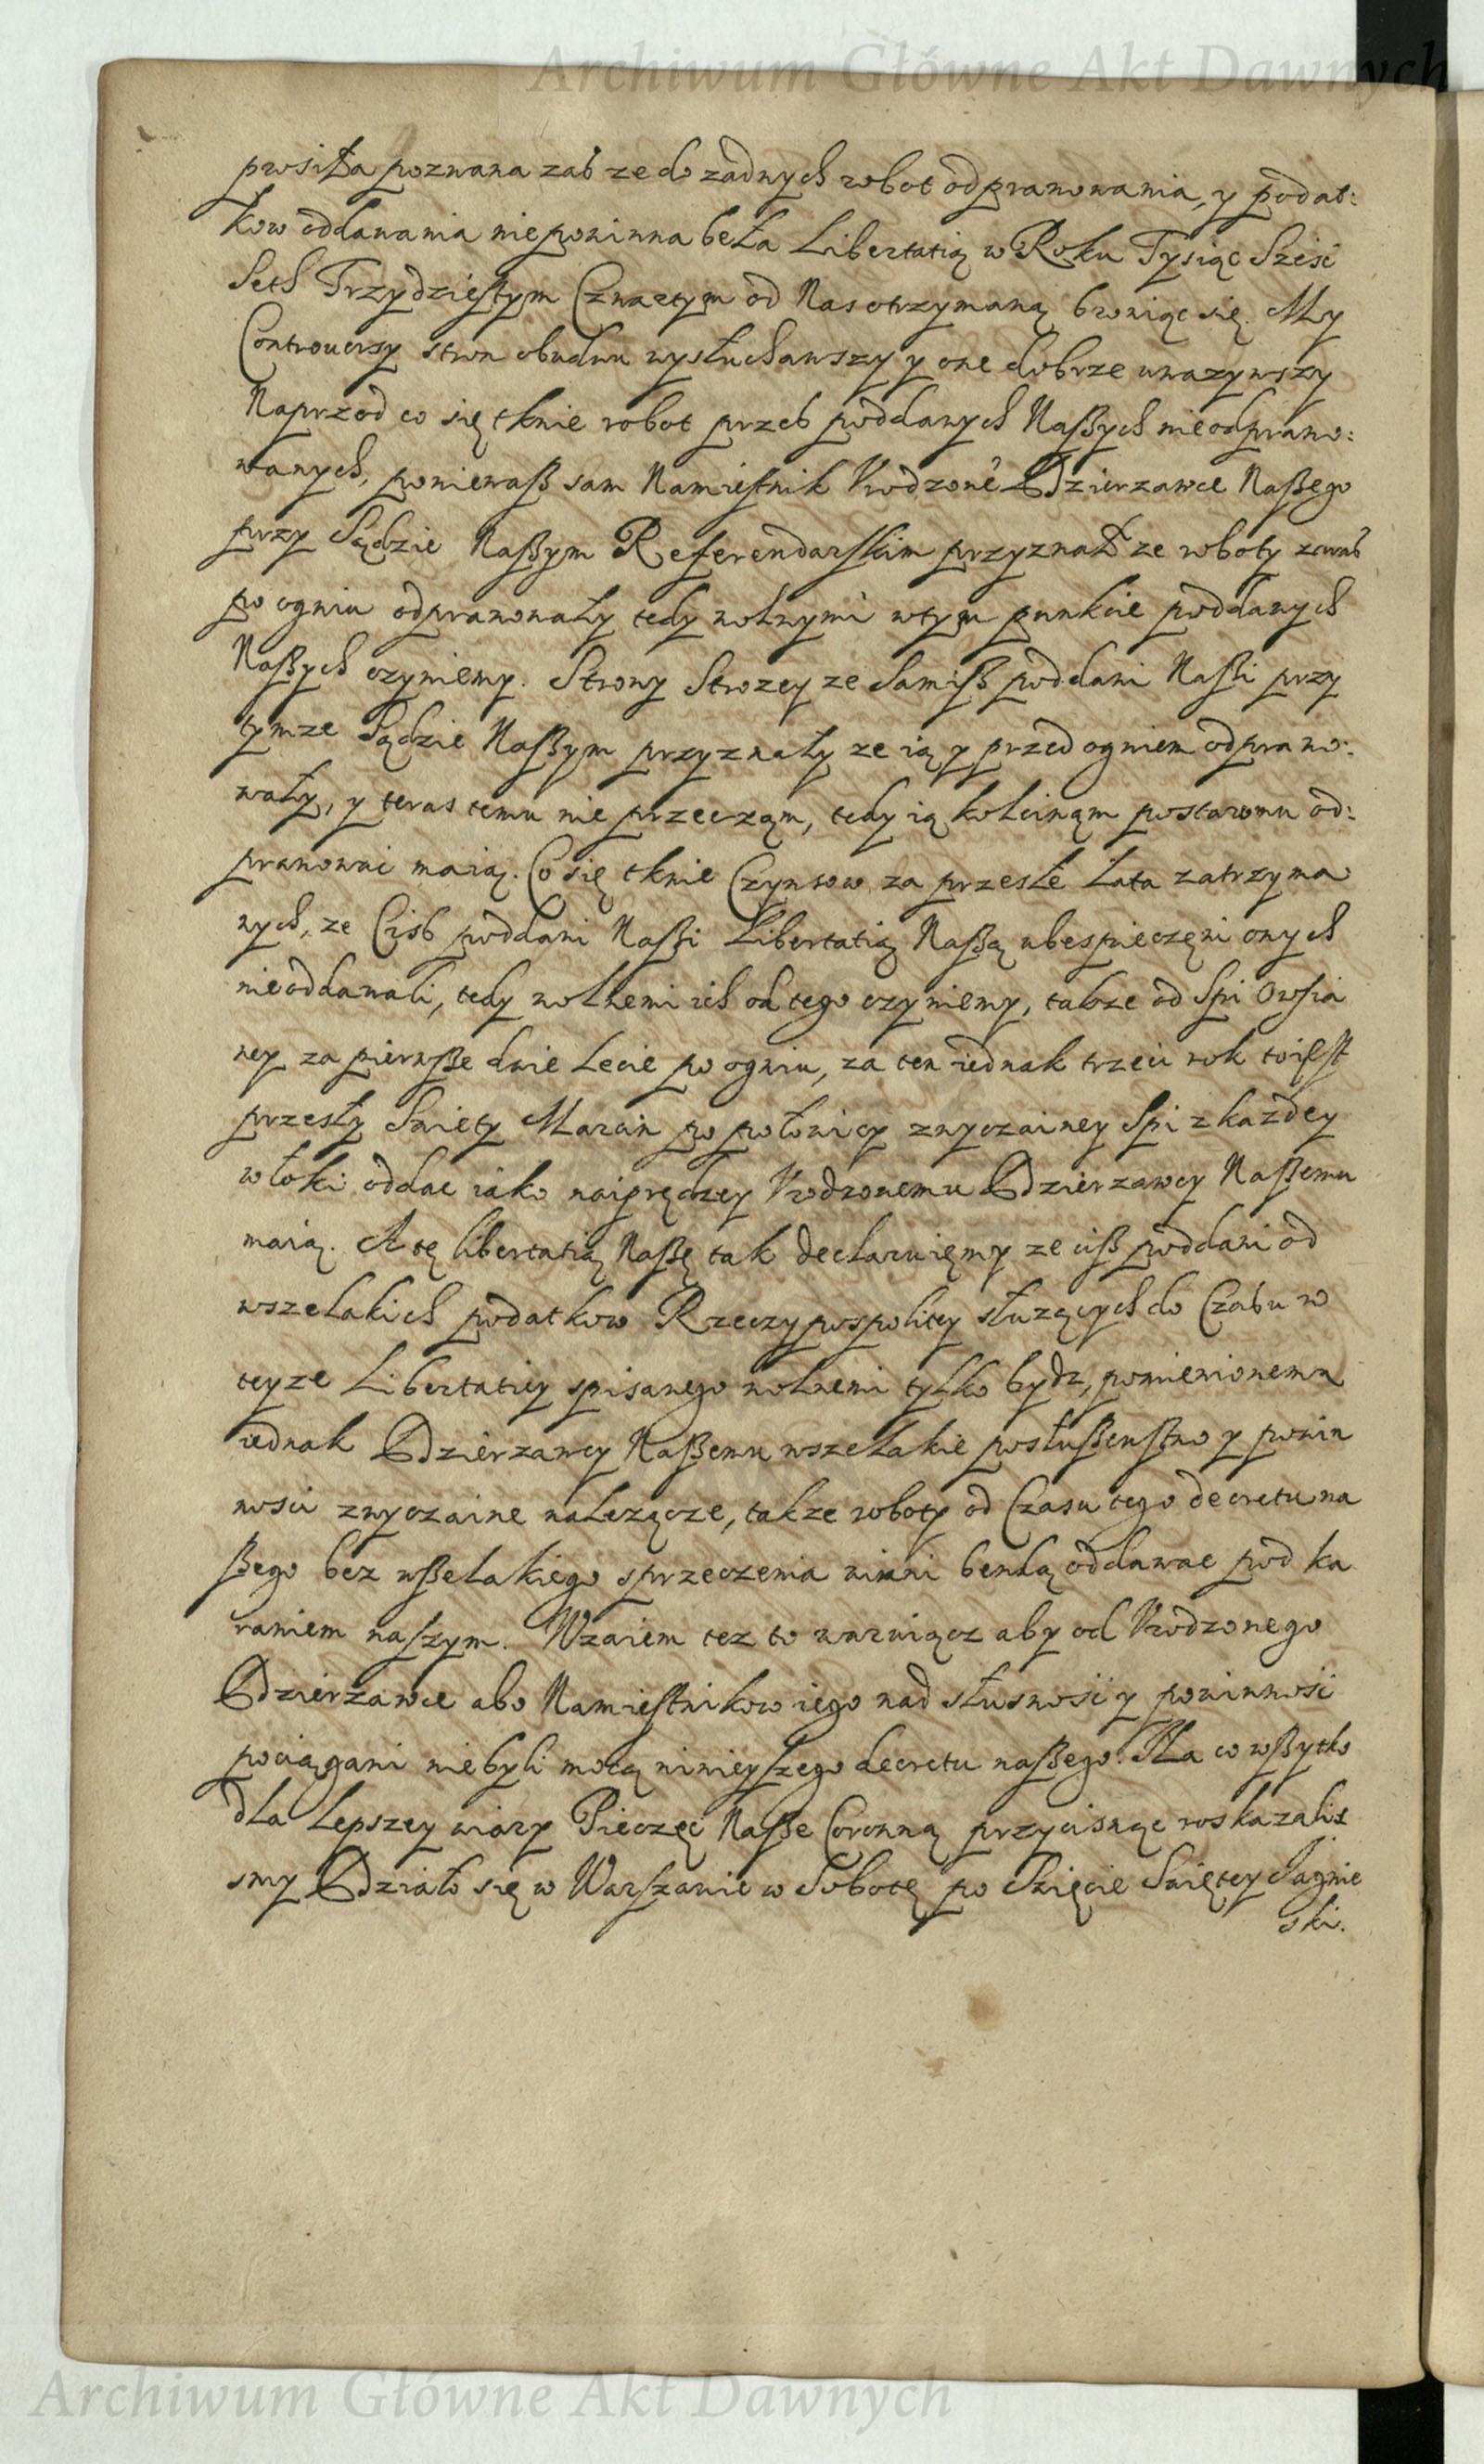 Archiwum Główne Akt Dawnych
prosiła poznana zaś ze do zadnych robot odprawowania, y podat:
kow oddawania niepowinna beła Libertatią w Roku Tysiąc Sześć
Seth Trzydziestym Czwartym od Nas otrzymaną broniąc się. My
Controuersy stron obudwu wysłuchawszy y one dobrze uwazywszy
Naprzod co się tknie robot przeb poddanych Naßych nieodprawo:
wanych, ponieważ sam Namiestnik Vrodzone̊ Dzierzawce Naßego
przy Sądzie Naßym Referendarskim przyznał ze roboty zawß
po ogniu odprawowały tedy wolnymi wtym punkcie poddanych
Naßych czyniemy. Strony Strozey ze Samiß poddani Naßi przy
tymze Sądzie Naßym przyznały ze ią y przed ogniem odprawo:
wały, y teras temu nie przeczą, tedy ią kolcinąm postaromu od:
prawowai maią. Co się tknie Czynsow za przeszłe Lata zatrzyma
nych, ze Ciß poddani Naßi Libertatią Naßą ubespieczęni onych
nieoddawali, tedy wolnemi ich od tego czyniemy, takze od Spi Owsia
ney za pierwsze dwie Lecie po ogniu, za ten iednak trzeci rok toiest
przeszły Swięty Marcin po połowicy zwyczainey Spi z kazdey
włoki oddac iako naiprędzey Vrodzonemu Dzierzawcy Naßemu
maią. A tę libertatią Naßę tak declaruięmy ze ciß poddani od
wszelakich podatkow Rzeczypospolitey słuzących do Czasu w
teyze Libertatiey spisanego wolnemi tylko bydz, pomienionemu
iednak Dzierzawcy Naßemu wszelakie posłußenstwo y powin
nosci zwyczaine nalezącze, takze roboty od Czasu tego decretu na
ßego bez wßelakiego sprzeczenia winni bendą oddawac pod ka
raniem naszym. Wzaiem tez to waruiącz aby od Vrodzonego
Dzierzawce abo Namiestnikow iego nad słusnosć y powinnosć
pociągani niebyli mocą ninieyszego decretu naßego. Na co wßytko
dla Lepszey wiary Pieczęć Naße Coronną przycisnąc roskazalis
smy Działo się w Warszawie w Sobotę po Swięcie Swiętey Jagnie
ski.
Archiwum Główne Akt Dawnych